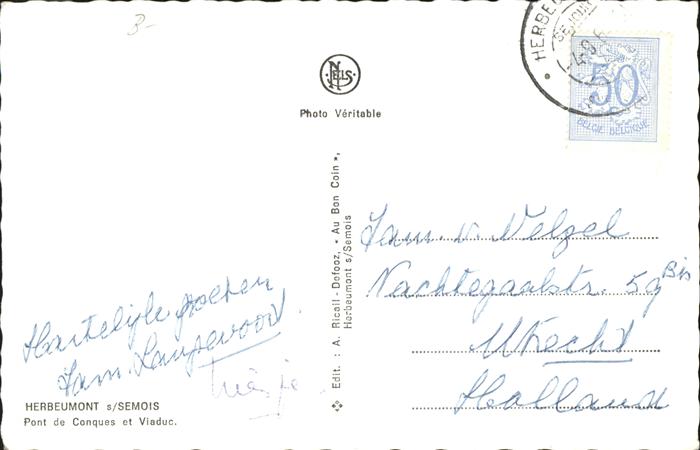 3-
NELS
Photo Véritable
HERBEU
SEJOU
50
BELGIE BELGIQUE
Edit. : A. Ricail-Defooz, « Au Bon Coin »,
Herbeumont s/Semois
Fam. v. Velzel
Nachtegaalstr. 59 Bis
Utrecht
Holland
Hartelijke groeten
Fam.
HERBEUMONT s/SEMOIS
Pont de Conques et Viaduc.